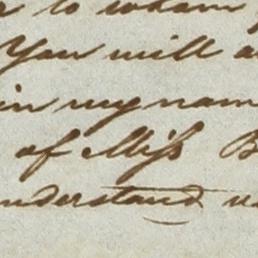 to whom
You will
in my nam
of Miſs B
nderstand